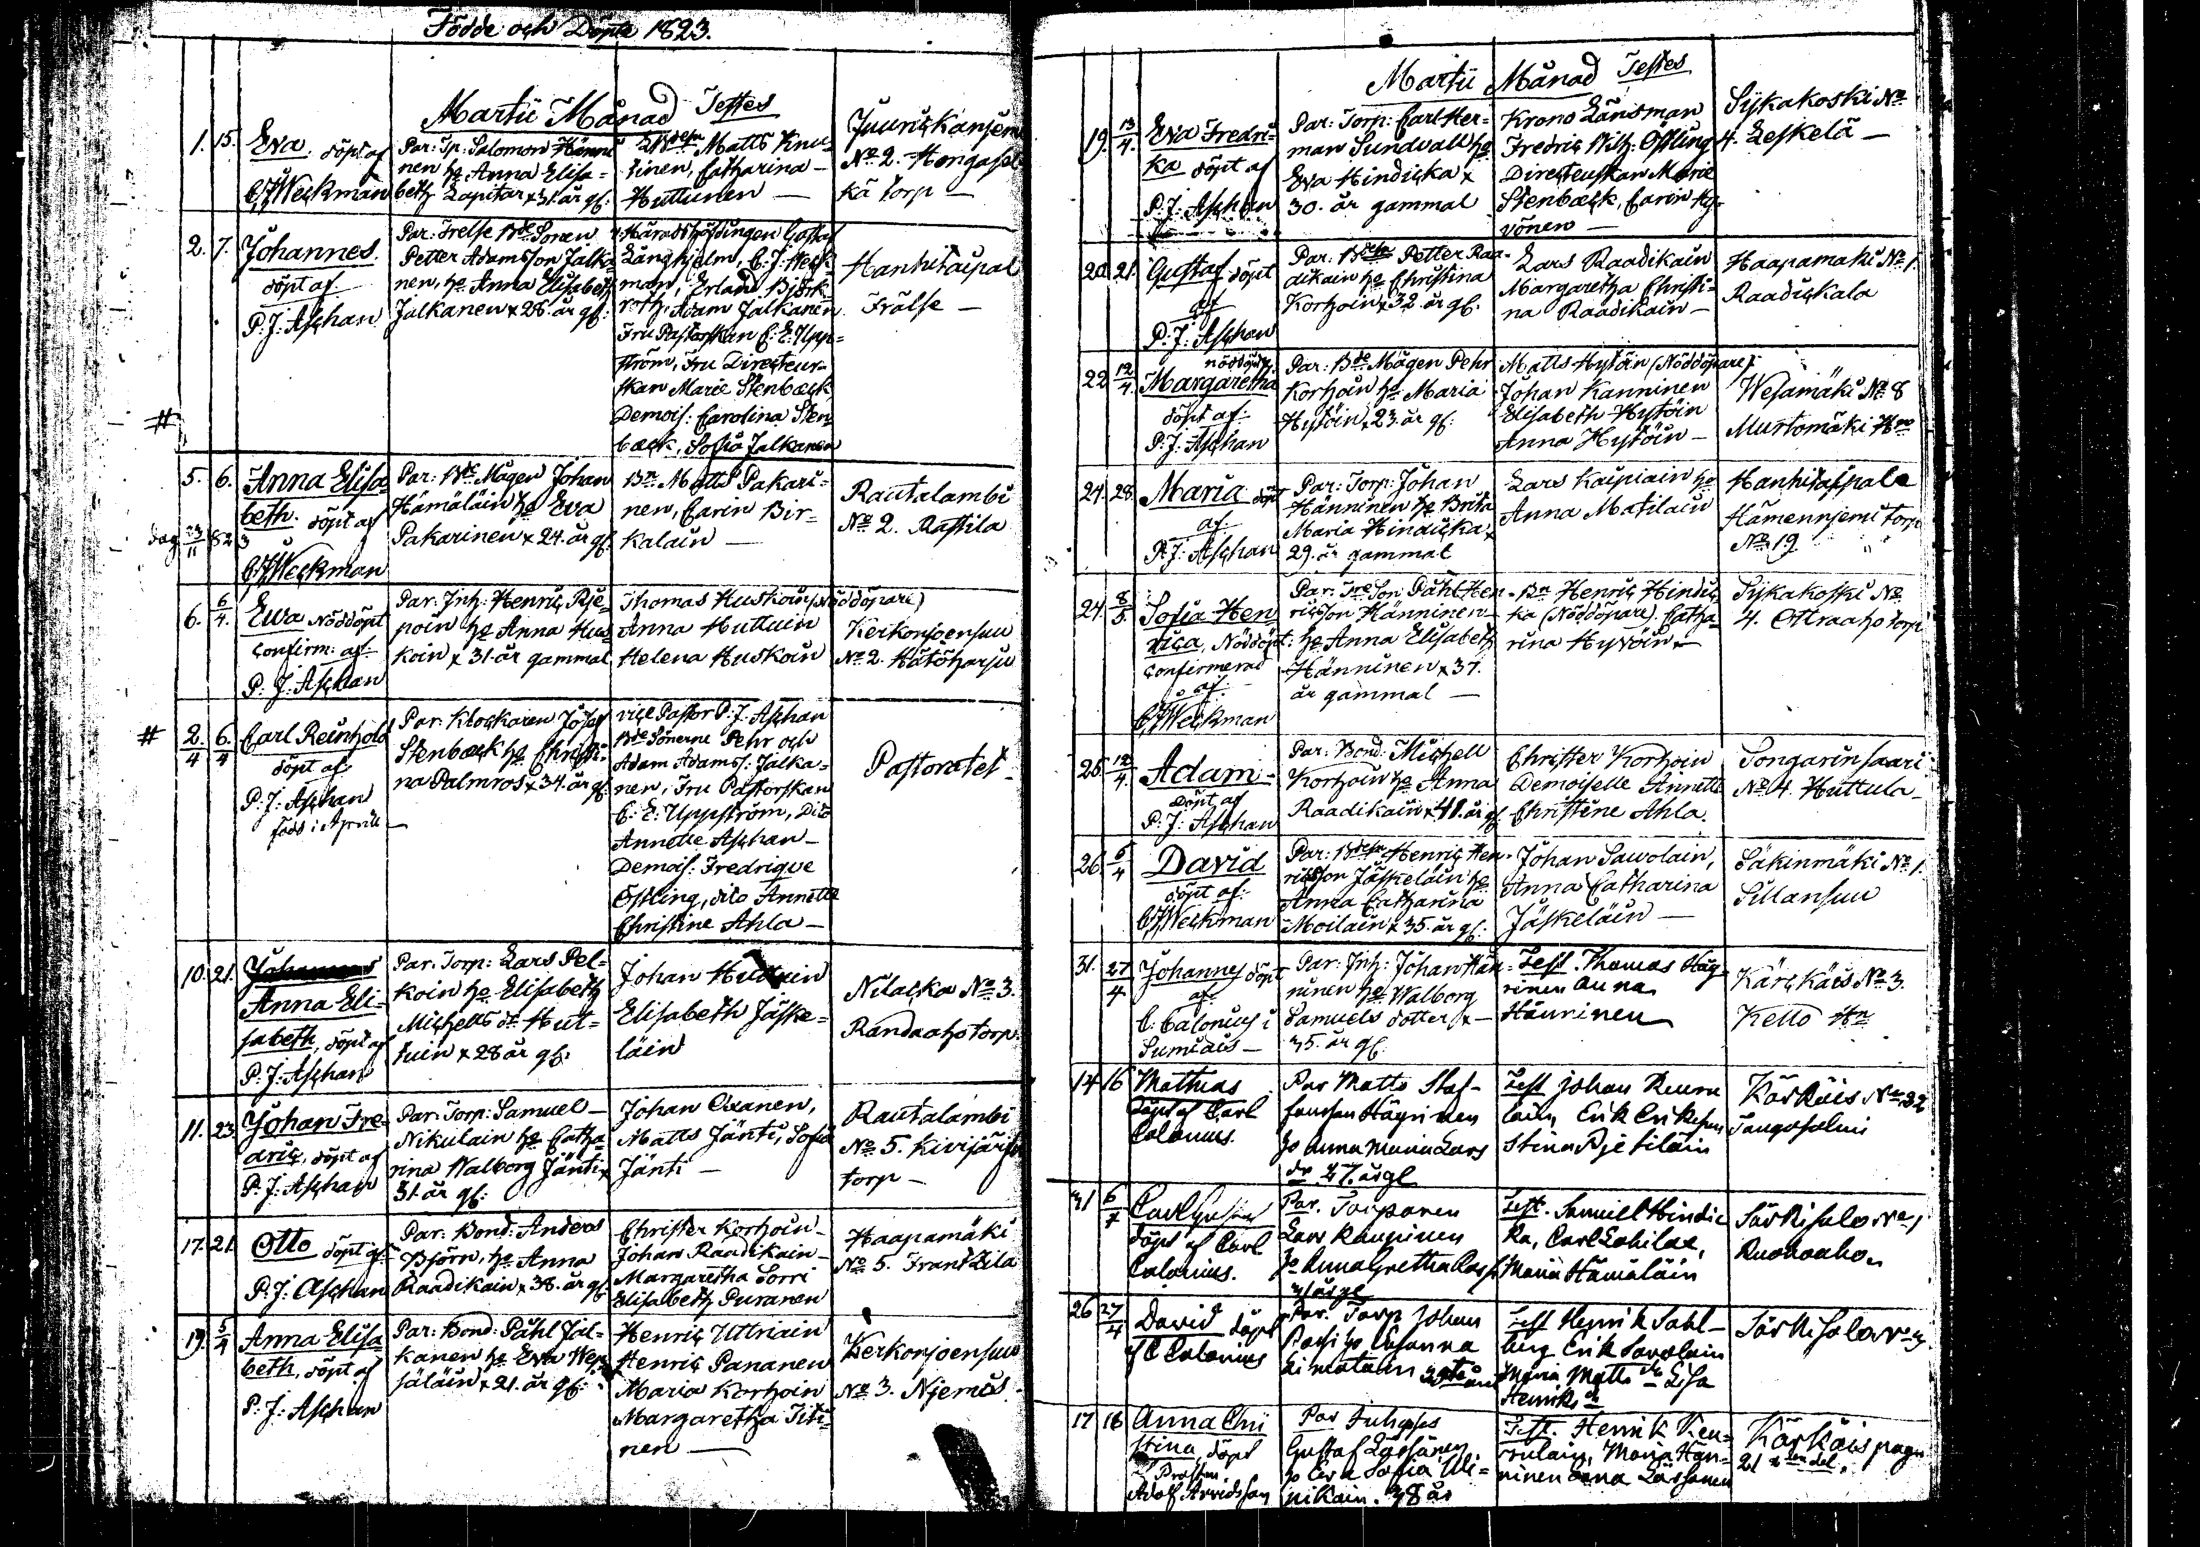 Födde och Döpte 1823.
Martii Månad Testes
1. 15. Eva döpt af
C J Weckman
Par: Tp: Salomon Hänni
nen h. Anna Elisa=
beth Lapitar x 31. år gl:
Matts Knu=
tinen, Catharina
Huttunen —
No. 2. Hongasel
kä torp —
2. 7. Johannes.
döpt af
P. J. Aschan
Par: Frelse Bde Sonen
Petter Adamsson Jalka=
nen, h. Anna Elisabeth
Jalkanen x 28. år gl:
Häradshöfdingen Gustaf
Långhjelm, C. J. Weck=
man, Erland Björk
roth, Adam Jalkanen
Fru Pastorskan C: E: Upp=
ström, Fru Directeur=
skan Marie Stenbæck
Demois: Carolina Sten
bæck, Sofia Jalkanen
Hankitaipal
Frälse —
#
5. 6. Anna Elisa=
beth. döpt af
C J Weckman
Par: Bde Mågen Johan
Hämäläin h. Eva
Pakarinen x 24. år gl.
Bn Matts Pakari=
nen, Carin Bir=
kalain —
Rautalambi
No. 2. Rastila
6. 6/4. Ewa nöddöpt
confirm: af.
P. J. Aschan
Par: Inh: Henric Rje=
poin h. Anna Hus=
koin x 31. år gammal
Thomas Huskoin (Nöddöpare)
Anna Huttuin
Helena Huskoin
Kerkonjoensuu
No. 2. Hätöharju
# 2/4 6/4 Carl Reinhold
döpt af
P. J. Aschan
född i Aprill —
Par: Klockaren Josef
Stenbæck h. Christi=
na Palmros x 34. år gl:
vice Pastor P. J. Aschan
Bde Sönerne Pehr och
Adam Adamss: Jalka=
nen, Fru Pastorskan
C: E: Uppström, Dito
Annette Aschan —
Demois: Fredrique
Östling, dito Annette
Christine Ahla —
Pastoratet
10. 21. Johannes
Anna Eli=
sabeth, döpt af
P. J. Aschan
Par: Torp: Lars Pel=
koin h. Elisabeth
Michells dr Hut=
tuin x 28 år gl:
Johan Huttuin
Elisabeth Jäske=
läin
Nilacka No. 3.
Randaaho torp.
11. 23 Johan Fre=
dric, döpt af
P. J. Aschan
Par: Torp: Samuel —
Nikulain h. Catha
rina Walborg Jänti x
31. år gl:
Johan Oxanen,
Matts Jänti, Sofia
Jänti —
Rautalambi
No. 5. Kivijärfvi
torp —
17. 21 Otto döpt af
P. J. Aschan
Par: Bond: Anders
Björn, h. Anna
Raadikain x 38. år gl:
Christer Korhoin —
Johan Raadikain —
Margaretha Sorri
Elisabeth Puranen
Haapamäki
No. 5. Frantzila
19. 5/4 Anna Elisa
beth, döpt af
P. J. Aschan
Par: Bond: Påhl Jal=
kanen h. Eva Wep
säläin x 21. år gl:
Henric Uttriain
Henric Pananen
Maria Korhoin
Margaretha Titi
nen —
Kerkonjoensuu
No. 3. Njemis
Martii Månad Testes
19. 13/4. Eva Fredri=
ka döpt af
P. J. Aschan
Par: Torp: Carl Her=
man Sundvall h.
Eva Hindicka x
30. år gammal
Krono Länsman
Fredric Wilh: Östling
Directeurskan Marie
Stenbæck, Carin Hy=
vönen —
Sykakoski No.
4. Leskelä —
20. 21. Gustaf döpt
af
P. J. Aschan
Par: Petter Raa=
dikain h. Christina
Korhoin x 32. år gl.
Lars Raadikain
Margaretha Christi=
na Raadikain —
Haapamäki No. 1.
Raadickala
22 12/4. nöddöpt
Margaretha
döpt af:
P. J. Aschan
Par: Bde Mågen Pehr
Korhoin h. Maria
Hytöin x 23. år gl:
Matts Hytöin (Nöddöpare)
Johan Kanninen
Elisabeth Hytöin
Anna Hytöin —
Wesamäki No. 8
Mustomäki
24. 28. Maria döpt
af
P. J. Aschan
Par: Torp: Johan
Hänninen h. Brita
Maria Hindicka x
29. år gammal
Lars Kaipiain h.
Anna Matilain
Hankitaipale
Hämennjemi torp
No. 19
24. 8/5. Sofia Hen
rica, Nöddöpt:
confirmerad
af
C J Weckman
Par: Påhl Hen=
ricsson Hänninen
h. Anna Elisabeth
Hänninen x 37.
år gammal —
Bn Henric Hindic
ka (Nöddöpare). Catha=
rina Hyvöin —
Sykakoski No.
4. Ottraaho torp
25. 12/4. Adam —
döpt af
P. J. Aschan
Par: Bond: Michell
Korhoin h. Anna
Raadikain x 41. år gl
Christer Korhoin
Demoiselle Annette
Christine Ahla.
Songarinsaari
No. 4. Huttula —
26. 6/4 David
döpt af:
C J Weckman
Par: Henric Hen=
ricsson Jäskeläin h.
Anna Catharina
Moilain x 35. år gl:
Johan Sawolain,
Anna Catharina
Jäskeläin —
Säkinmäki No. 1.
Sillansuu
31. 27/4 Johannes döpt
af
C: Calonius i
Sumiais —
Par: Inh: Johan Hän=
ninen h. Walborg
Samuels dotter x —
35. år gl.
Test. Thomas Häg
rinen Anna
Kärckäis No. 3.
Kello Hn
14 16 Mathias
döpt af Carl
Calonius.
Par Matts Staf=
fansson Hägrinen
h. Anna Maria Lars
dr 27. år gl
Test Johan
Erik
Stina
Kärkäis No. 32
31 6/7
döpt af Carl
Calonius.
Par.
Lars Kaupinen
h. Anna Gretha
Test. Samuel Hindic
ka, Carl
Maria Hämäläin
Särkisalo No. 1
Ruokoaho
26 27/4 David döpt
af C Calonius
Par. Torp Johan
h. Susanna
Test Henrik Sahl=
berg Erik Savolain
Maria Matts dr Lisa
Henriks dr
Särkisalo No. 3
17 16 Anna Chri
stina, döpt
Prosten
Adolf Arvidsson
Par
Gustaf Lassanen
38 år
Test. Henrik
Maria Hän=
ninen Anna Lassanen
Kärkäis
21